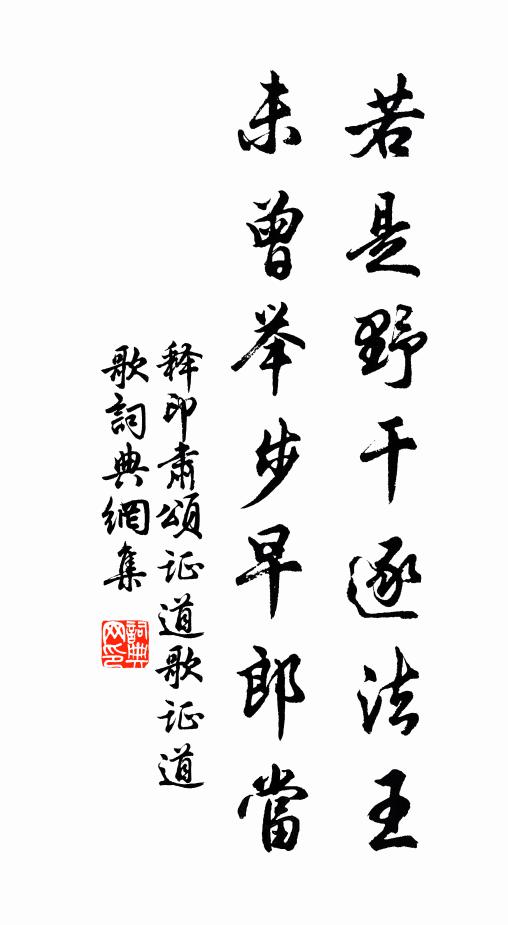 若是野干逐法王
未曾举步早郎當
释印肃頌证道歌证道
歌詞典網集
詞典
网印